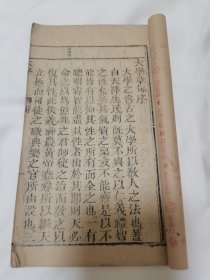 大學章句序
大學之書古之大學所以教人之法也蓋
自天降生民則既莫不與之以仁義禮智
之性矣然其氣質之稟或不能齊是以不
能皆有以知其性之所有而全之也一有
聰明睿智能盡其性者出於其間則天必
命之以為億兆之君師使之治而教之以
復其性此伏羲神農黃帝堯舜所以繼天
立極而司徒之職典樂之官所由設也三